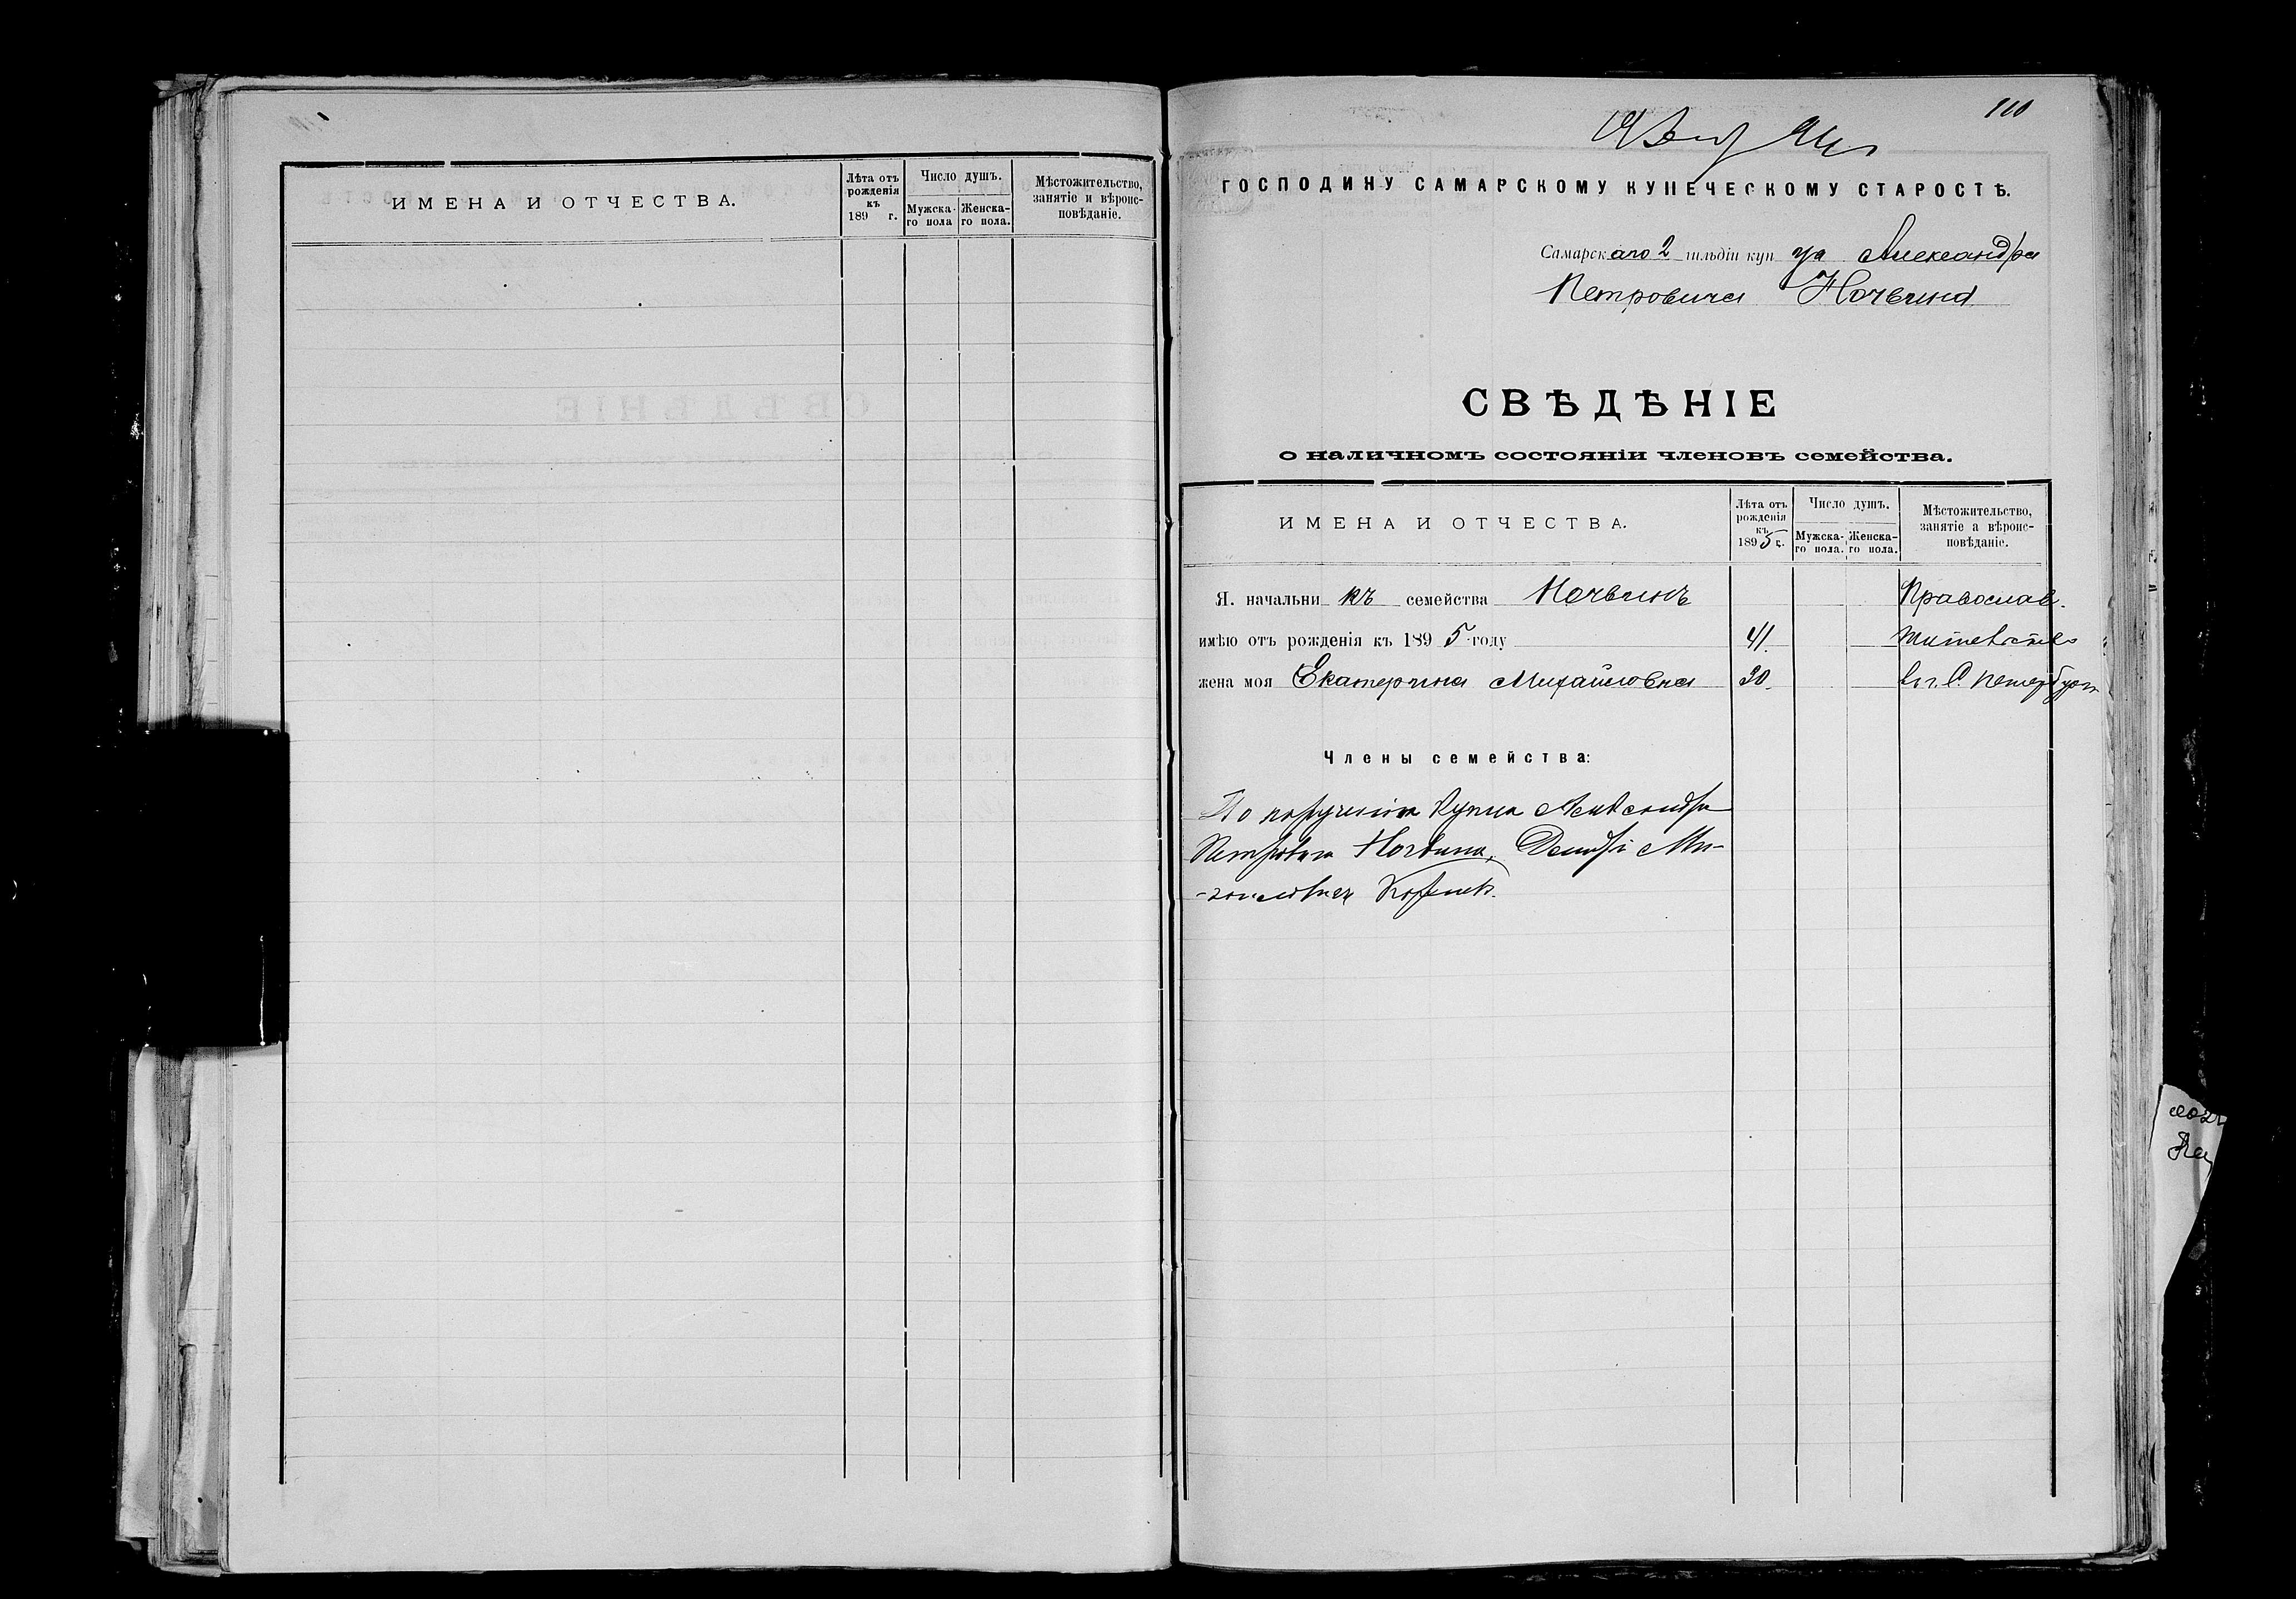 ИМЕНА И ОТЧЕСТВА.
Лѣта отъ
рожденія
къ
189 г.
Число душъ.
Мужска-
го пола
Женска-
го пола.
Мѣстожительство,
занятіе и вѣроис-
повѣданіе.
110
ГОСПОДИНУ САМАРСКОМУ КУПЕЧЕСКОМУ СТАРОСТѢ.
Самарскаго 2 гильдіи купца Александра
Петровича Ночвина
СВѢДѢНІЕ
о наличномъ состояніи членовъ семейства.
ИМЕНА И ОТЧЕСТВА.
Лѣта отъ
рожденія
къ
1895 г.
Число душъ.
Мужска-
го пола.
Женска-
го пола.
Мѣстожительство,
занятіе а вѣроис-
повѣданіе.
Я. начальникъ семейства Ночвинъ Православ.
имѣю отъ рожденія къ 1895 году 41.
жена моя Екатерина Михайловна 30. въ г. С. Петербургѣ
Члены семейства:
По порученію Купца Александра
Петровича Ночвина, Ми-